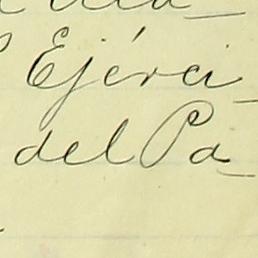 Ejérci
del Pa